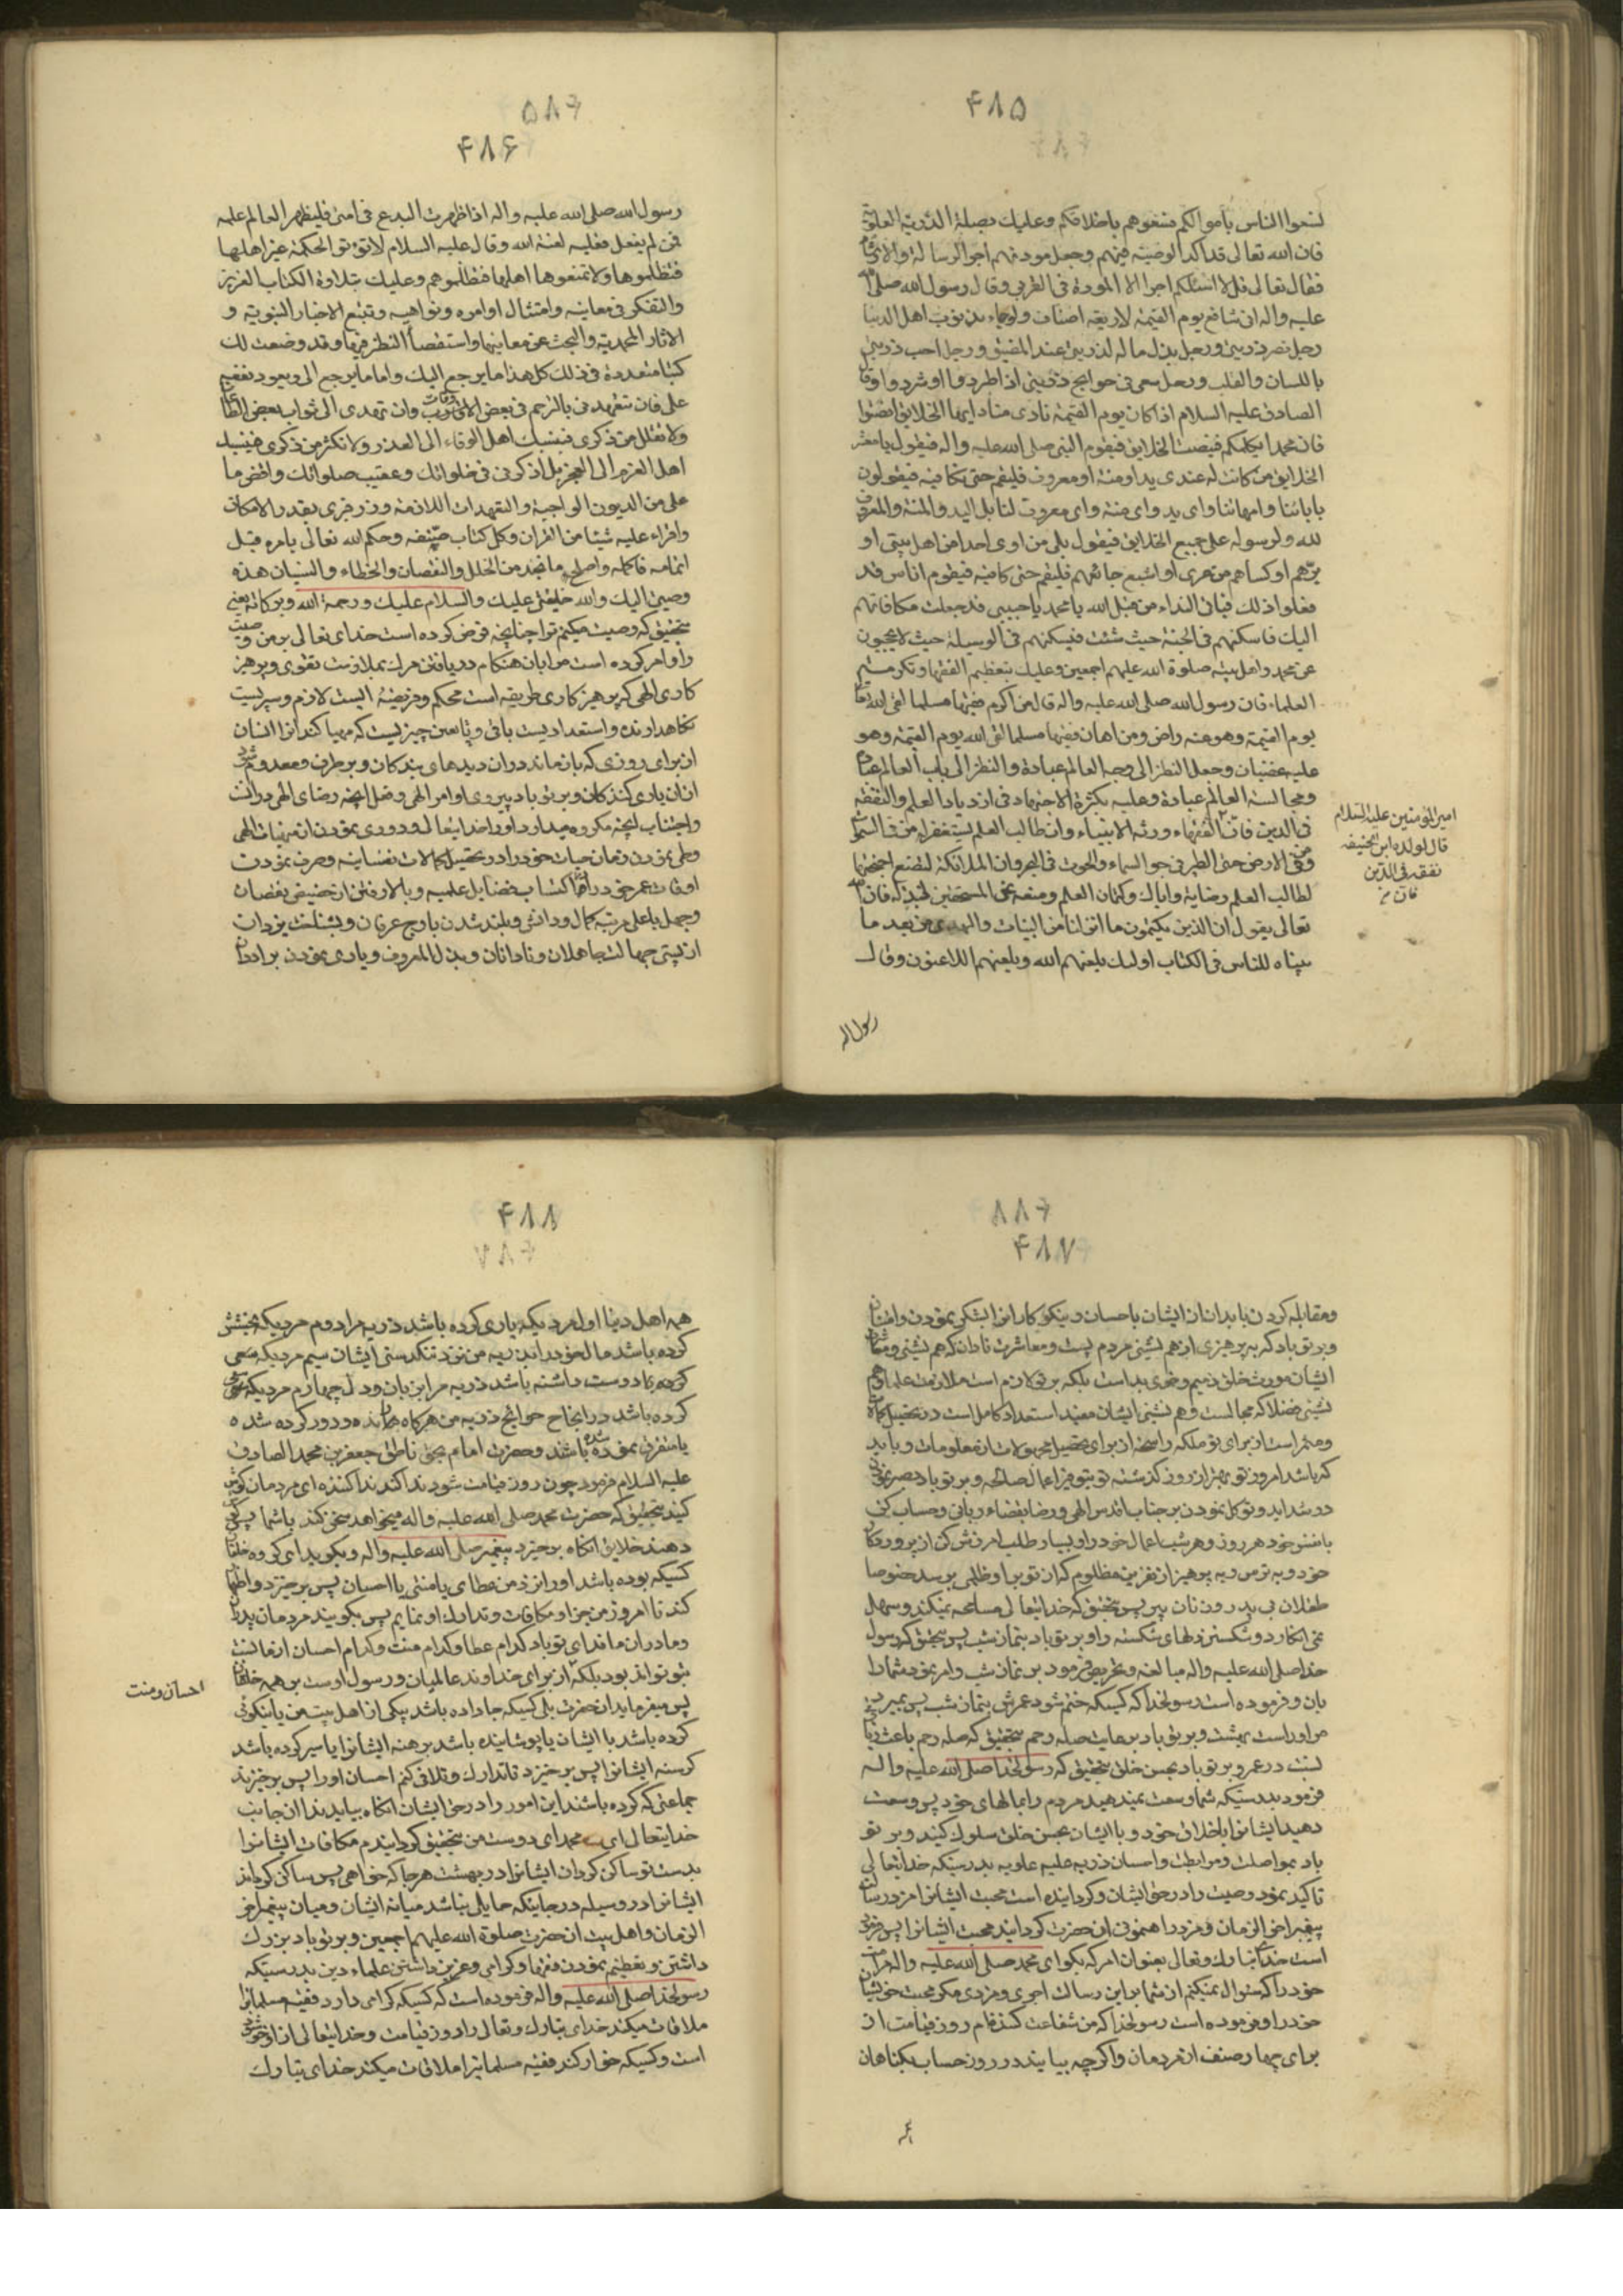 ۴۸۵
لتسعوا الناس باموالکم فسعوهم باخلاقکم وعلیک بصلة الذریة العلویة
فان الله تعالی قد اکد الوصیة فیهم وجعل مودتهم اجر الرسالة والارشاد
فقال تعالی قل لا اسئلکم اجرا الا المودة فی القربی وقال رسول الله صلی الله
علیه واله انی شافع یوم القیمة لاربعة اصناف ولو جاء بذنوب اهل الدنیا
رجل نصر ذریتی ورجل بذل ماله لذریتی عند المضیق ورجل احب ذریتی
باللسان والقلب ورجل سعی فی حوایج ذریتی اذا طردوا او شردوا وقال
الصادق علیه السلام اذا کان یوم القیمة نادی مناد ایها الخلایق انصتوا
فان محمدا یکلمکم فینصت الخلایق فیقوم النبی صلی الله علیه واله فیقول یا معشر
الخلایق من کانت له عندی ید او منة او معروف فلیقم حتی اکافیه فیقولون
بابائنا وامهاتنا وای ید وای منة وای معروف لنا بل الید والمنة والمعروف
لله ولرسوله علی جمیع الخلایق فیقول بلی من اوی احدا من اهل بیتی او
برهم او کساهم من عری او اشبع جائعهم فلیقم حتی کافیه فیقوم اناس قد
فعلوا ذلک فیاتی النداء من قبل الله یا محمد یا حبیبی قد جعلت مکافاتهم
الیک فاسکنهم فی الجنة حیث شئت فیسکنهم فی الوسیلة حیث لا یحجبون
عن محمد واهل بیته صلوة الله علیهم اجمعین وعلیک بتعظیم الفقهاء وتکرمة
العلماء فان رسول الله صلی الله علیه واله قال من اکرم فقیها مسلما لقی الله تعالی
یوم القیمة وهو عنه راض ومن اهان فقیها مسلما لقی الله یوم القیمة وهو
علیه غضبان وجعل النظر الی وجه العالم عبادة والنظر الی باب العالم عبادة
ومجالسة العالم عبادة وعلیه بکثرة الاجتهاد فی ازدیاد العلم والتفقه
فی الدین فان الفقهاء ورثة الانبیاء وان طالب العلم لیستغفر له من فی السموات
ومن فی الارض حتی الطیر فی جو السماء والحوت فی البحر وان الملائکة لتضع اجنحتها
لطالب العلم رضا به وایاک وکتمان العلم ومنعه عن المستحقین لبذله فان الله
تعالی یقول ان الذین یکتمون ما انزلنا من البینات والهدی من بعد ما
بیناه للناس فی الکتاب اولئک یلعنهم الله ویلعنهم اللاعنون وقال
رسول الله
امیر المؤمنین علیه السلام
قال لولده ابن الحنیفه
تفقه فی الدین
فان
۴۸۶
رسول الله صلی الله علیه واله اذا ظهرت البدع فی امتی فلیظهر العالم علمه
فمن لم یفعل فعلیه لعنة الله وقال علیه السلام لا تؤتو الحکمة غیر اهلها
فتظلموها ولا تمنعوها اهلها فتظلموهم وعلیک بتلاوة الکتاب العزیز
والتفکر فی معانیه وامتثال اوامره ونواهیه وتتبع الاخبار النبویة و
الاثار المحمدیة والبحث عن معانیها واستقصاء النظر فیها وقد وضعت لک
کتبا متعددة فی ذلک کل هذا ما یرجع الیک واما ما یرجع الی ویعود نفعه
علی فان تتعهدنی بالترحم فی بعض الاوقات وان تهدی الی ثواب بعض الطاعات
ولا تقلل من ذکری فینسبک اهل الوفاء الی الغدر ولا تکثر من ذکری فینسبک
اهل العزم الی العجز بل اذکرنی فی خلواتک وعقیب صلواتک واقض ما
علی من الدیون الواجبة والتعهدات اللازمة وزر قبری بقدر الامکان
واقراء علیه شیئا من القران وکل کتاب صنفته وحکم الله تعالی بامره قبل
اتمامه فاکمله واصلح ما تجد من الخلل والنقصان والخطاء والنسیان هذه
وصیتی الیک والله خلیفتی علیک والسلام علیک ورحمة الله وبرکاته یعنی
بتحقیق که وصیت میکنم ترا چنانچه فرض کرده است خدای تعالی بر من وصیت
را و امر کرده است مرا بان هنکام دریافتن مرک بملازمت تقوی و پرهیز
کاری الهی که پرهیزکاری طریقه است محکم و فریضهٔ الیست لازم و سپریست
نکاهدارنده و استعدادیست باقی و نافعترین چیزیست که مهیا کند انرا انسان
از برای روزی که باز ماند دران دیدهای بندکان و برطرف و معدوم شود
ازان یاری کنندکان و بر تو باد پیروی اوامر الهی و فعل انچه رضای الهی درانست
واجتناب انچه مکروه میدارد اورا خدایتعالی و دوری نمودن از منهیات الهی
وطی نمودن زمان حیات خود را در تحصیل کمالات نفسانیه و صرف نمودن
اوقات عمر خود را در اکتساب فضایل علمیه و بالا رفتن از حضیض نقصان
وجهل باعلی مرتبه کمال و دانش و بلند شدن باوج عرفان و بشناخت یزدان
از پستی جهالت جاهلان و نادانان و بذل المعروف و یاری نمودن برادران
۴۸۷
ومقابله کردن با بدان از ایشان باحسان و نیکوکارانرا بشکر نمودن و امتنان
و بر تو باد که به پرهیزی از هم نشینی مردم پست و معاشرت نادان که هم نشینی و معاشرت
ایشان مورث خلق ذمیم و خوی بد است بلکه بر تو لازم است ملازمت علما و هم
نشینی فضلا که مجالست و هم نشینی ایشان مفید استعداد کامل است در تحصیل کمالات
ومثمر است از برای تو ملکه راسخه از برای تحصیل مجهولات از معلومات و باید
که باشد امروز تو بهتر از روز کذشته تو بتوفیر اعمال صالحه و بر تو باد بصبر نمودن
در شداید و توکل نمودن بر جناب اقدس الهی و رضا بقضاء ربانی و حساب کن
با نفس خود هر روز و هر شب اعمال خود را و بسیار طلب امرزش کن از پروردکار
خود و به ترس و به پرهیز از نفرین مظلوم که از تو بر او ظلمی برسد خصوصا
طفلان بی پدر و زنان پیر پس بتحقیق که خدایتعالی مسامحه نمیکند و سهل
نمی انکارد و شکستن دلهای شکسته را و بر تو باد بنماز شب پس بتحقیق که رسول
خدا صلی الله علیه واله مبالغه و تحریص فرمود بر نماز شب و امر نمود شما را
بان و فرموده است رسولخدا که کسیکه ختم شود عمرش بنماز شب پس بمیرد پس
مر اوراست بهشت و بر تو باد برعایت صله رحم بتحقیق که صله رحم باعث زیاد
تیست در عمر و بر تو باد بحسن خلق بتحقیق که رسولخدا صلی الله علیه واله
فرمود بدرستیکه شما وسعت نمیدهید مردم را بمالهای خود پس وسعت
دهید ایشانرا باخلاق خود و با ایشان بحسن خلق سلوک کنید و بر تو
باد بمواصلت و مرابطت و احسان ذریه علیه علویه بدرستیکه خدایتعالی
تاکید نمود وصیت را در حق ایشان و کردانیده است محبت ایشانرا مزد رسالت
پیغمبر اخر الزمان و مزد راهنمونی ان حضرت کردانید محبت ایشانرا پس فرموده
است خدای تبارک و تعالی بعنوان امر که بکو ای محمد صلی الله علیه واله مر امت
خود را که سئوال نمیکنم از شما بر این رسالت اجری و مزدی مکر محبت خویشان
خود را و فرموده است رسولخدا که من شفاعت کننده ام روز قیامت از
برای چهار صنف از مردمان و اکرچه بیایند در روز حساب بکناهان
همه
۴۸۸
همه اهل دنیا اول مردیکه یاری کرده باشد ذریه مرا دوم مردیکه بخشش
کرده باشد مال خود را بذریه من نزد تنکدستی ایشان سیم مردیکه سعی
کرده یا دوست داشته باشد ذریه مرا بزبان و دل چهارم مردیکه سعی
کرده باشد در انجاح حوایج ذریه من هرکاه رانده و دور کرده شده
یا متفرق نموده شده باشند و حضرت امام بحق ناطق جعفر بن محمد الصادق
علیه السلام فرمود چون روز قیامت شود ندا کند ندا کننده ای مردمان کوش
کنید بتحقیق که حضرت محمد صلی الله علیه واله میخواهد سخن کند باشما پس کوش
دهند خلایق انکاه برخیزد پیغمبر صلی الله علیه واله و بکوید ای کروه خلایق
کسیکه بوده باشد اورا نزد من عطای یا منتی یا احسان پس برخیزد و اظهار
کند تا امروز من جزا و مکافات و تدارک او نمایم پس بکویند مردمان پدران
ومادران ما فدای تو باد کدام عطا و کدام منت و کدام احسان از ما نسبت
بتو تواند بود بلکه از برای خداوند عالمیان و رسول اوست بر همه خلقان
احسان و منت
پس میفرماید انحضرت بلی کسیکه جا داده باشد یکی از اهل بیت من یا نیکوئی
کرده باشد با ایشان یا پوشانیده باشد برهنه ایشانرا یا سیر کرده باشد
کرسنه ایشانرا پس برخیزد تا تدارک و تلافی کنم احسان اورا پس برخیزند
جماعتی که کرده باشند این امور را در حق ایشان انکاه بیاید ندا از جانب
خدایتعالی ای محمد ای دوست من بتحقیق کردانیدم مکافات ایشانرا
بدست تو ساکن کردان ایشانرا در بهشت هر جا که خواهی پس ساکن کرداند
ایشانرا در وسیله در جاییکه حایلی نباشد میانه ایشان و میان پیغمبر اخر
الزمان و اهل بیت ان حضرت صلوة الله علیهم اجمعین و بر تو باد بزرک
داشتن و تعظیم نمودن فقها و کرامی و عزیز داشتن علماء دین بدرستیکه
رسولخدا صلی الله علیه واله فرموده است که کسیکه کرامی دارد فقیه مسلمانرا
ملاقات میکند خدای تبارک و تعالی را روز قیامت و خدایتعالی از او خوشنود
است و کسیکه خوار کند فقیه مسلمانیرا ملاقات میکند خدای تبارک